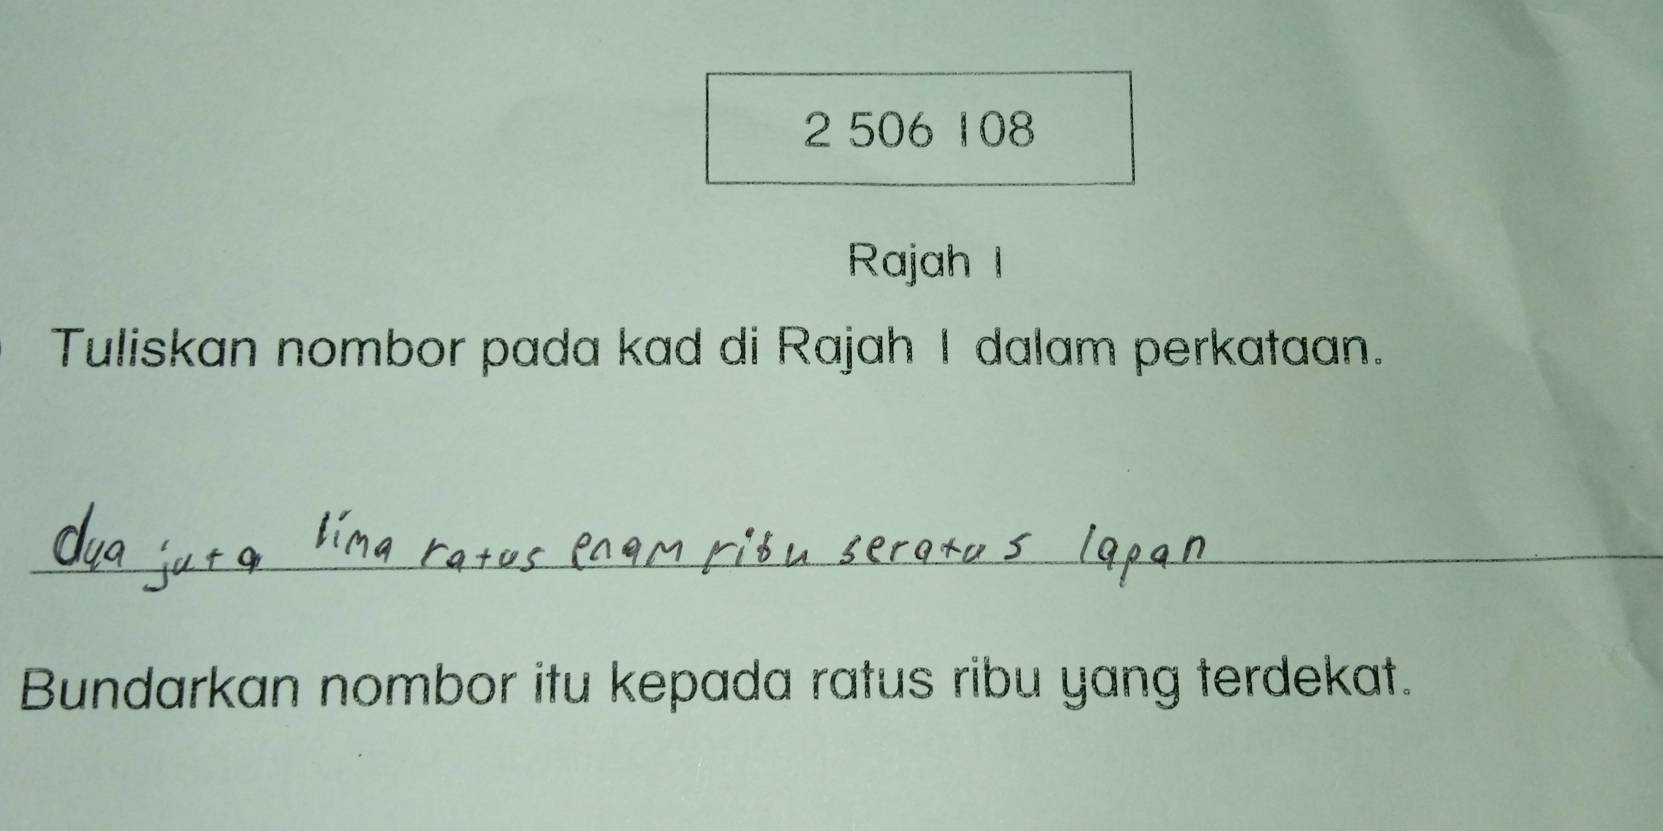 2 506 108
Rajah 1
Tuliskan nombor pada kad di Rajah 1 dalam perkataan.
dua juta lima ratus enam ribu seratus lapan
Bundarkan nombor itu kepada ratus ribu yang terdekat.